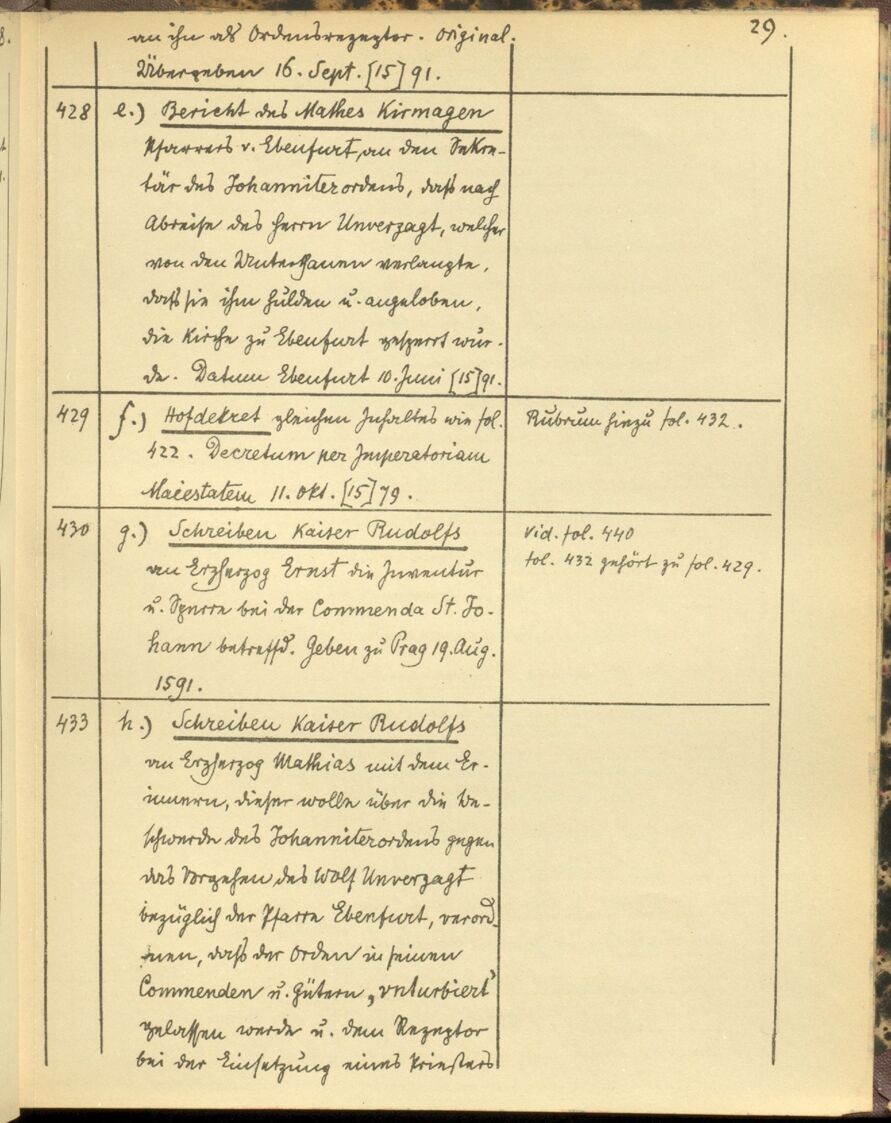 29.
an ihn als Ordensrezeptor. Original.
Übergeben 16. Sept. [15]91.
428 e.) Bericht des Mathes Kirmagen
Pfarrers v. Ebenfurt, an den Sekre-
tär des Johanniterordens, daß nach
Abreise des Herrn Unverzagt, welcher
von den Unterthanen verlangte,
daß sie ihm hulden u. angeloben,
die Kirche zu Ebenfurt gesperrt wur-
de. Datum Ebenfurt 10. Juni [15]91.
429 f.) Hofdekret gleichen Inhaltes wie fol.
422. Decretum per Imperatoriam
Maiestatem 11. Okt. [15]79.
Rubrum hiezu fol. 432.
430 g.) Schreiben Kaiser Rudolfs
an Erzherzog Ernst die Inventur
u. Sperre bei der Commenda St. Jo-
hann betreffd. Geben zu Prag 19. Aug.
1591.
vid. fol. 440
fol. 432 gehört zu fol. 429.
433 h.) Schreiben Kaiser Rudolfs
an Erzherzog Mathias mit dem Er-
innern, dieser wolle über die Be-
schwerde des Johanniterordens gegen
das Vorgehen des Wolf Unverzagt
bezüglich der Pfarre Ebenfurt, verord-
nen, daß der Orden in seinen
Commenden u. Gütern „vnturbiert"
gelassen werde u. dem Rezeptor
bei der Einsetzung eines Priesters